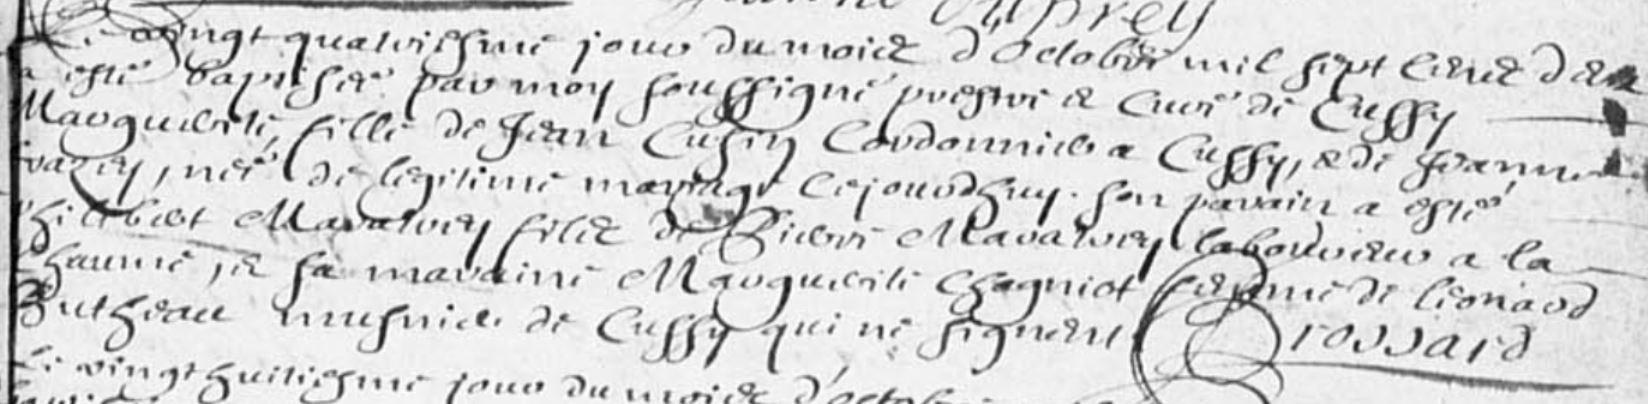 Le vingt quatriesme jour du mois d'octobre mil sept cent deux
a esté baptisée par moy soussigné prestre et curé de Cussy
Marguerite, fille de Jean Cusin Cordonnier a Cussy, et de Jeanne
née de legitime mariage cejourdhuy. son parain a esté
philibert Maratrey fils de Pierre Maratrey laboureur a la
Chaume, et sa maraine Marguerite Chagniot femme de Leonard
Butheau musnier de Cussy qui ne signent Brossard
Le vingt huitiesme jour du mois d'octobre